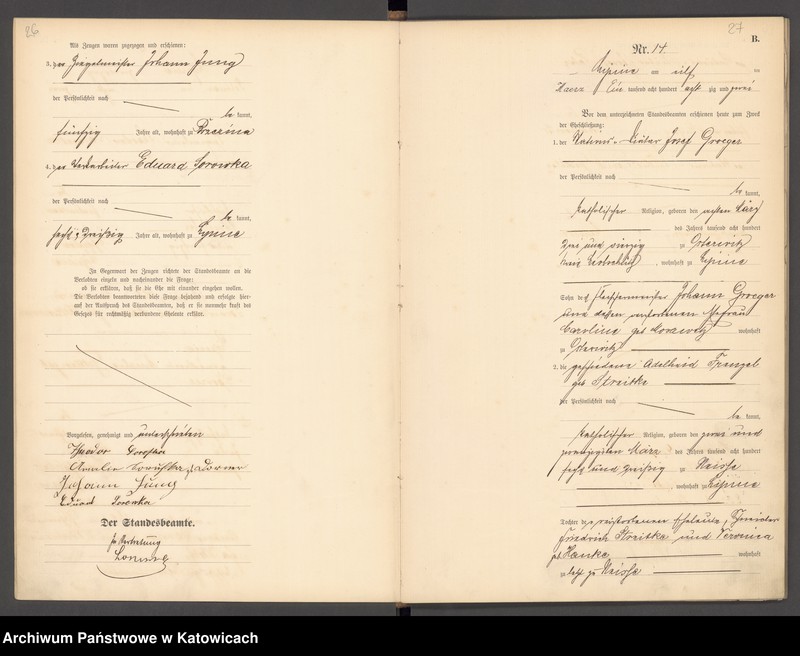 26
Als Zeugen waren zugezogen und erschienen:
3. der Ziegelmeister Johann Jung
der Persönlichkeit nach
be kannt,
fünfzig Jahre alt, wohnhaft zu
4. der Eduard
der Persönlichkeit nach
be kannt,
Jahre alt, wohnhaft zu Lipine
In Gegenwart der Zeugen richtete der Standesbeamte an die
Verlobten einzeln und nacheinander die Frage:
ob sie erklären, daß sie die Ehe mit einander eingehen wollen.
Die Verlobten beantworteten diese Frage bejahend und erfolgte hier-
auf der Ausspruch des Standesbeamten, daß er sie nunmehr kraft des
Gesetzes für rechtmäßig verbundene Eheleute erkläre.
Vorgelesen, genehmigt und unterschrieben
Theodor
Johann Jung
Eduard
Der Standesbeamte.
In Vertretung
27
B.
Nr. 14.
Lipine am elf ten
März Ein tausend acht hundert acht zig und zwei
Vor dem unterzeichneten Standesbeamten erschienen heute zum Zweck
der Eheschließung:
1. der Josef Groeger
der Persönlichkeit nach
be kannt,
katholischer Religion, geboren den achten März
des Jahres tausend acht hundert
zwei und vierzig zu
Kreis Leobschütz, wohnhaft zu Lipine
Sohn des Fleischermeister Johann Groeger
und dessen verstorbenen Ehefrau
Caroline geb. wohnhaft
zu
2. die geschiedene Adelheid Frenzel
geb. Streitke
der Persönlichkeit nach
be kannt,
katholischer Religion, geboren den zwei und
zwanzigsten März des Jahres tausend acht hundert
sechs und dreißig zu Neisse
, wohnhaft zu Lipine
Tochter der verstorbenen Eheleute, Schneider
Friedrich Streitke und Veronica
geb. Hanke wohnhaft
zuletzt zu Neisse
Archiwum Państwowe w Katowicach